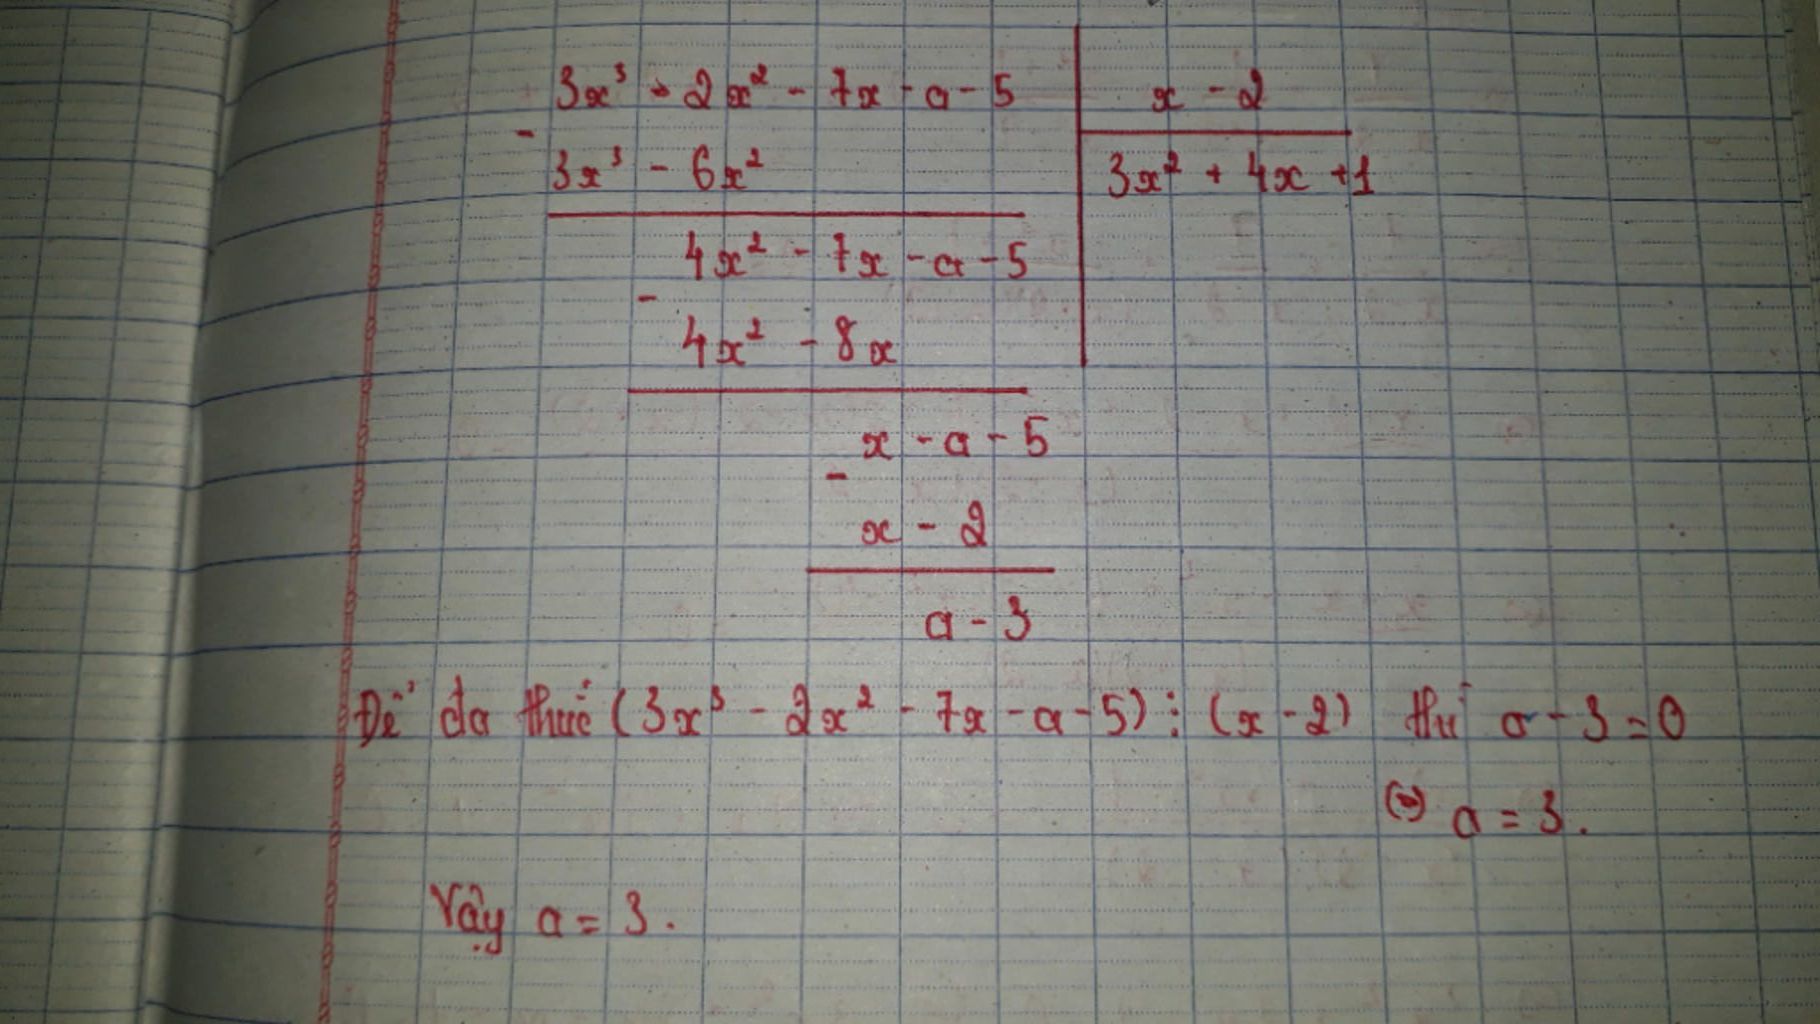 3x³ - 2x² - 7x - a - 5 | x - 2
-
3x³ - 6x² | 3x² + 4x + 1
4x² - 7x - a - 5
-
4x² - 8x
x - a - 5
-
x - 2
a - 3
Để đa thức (3x³ - 2x² - 7x - a - 5) ⋮ (x - 2) thì a - 3 = 0
(=) a = 3.
Vậy a = 3.